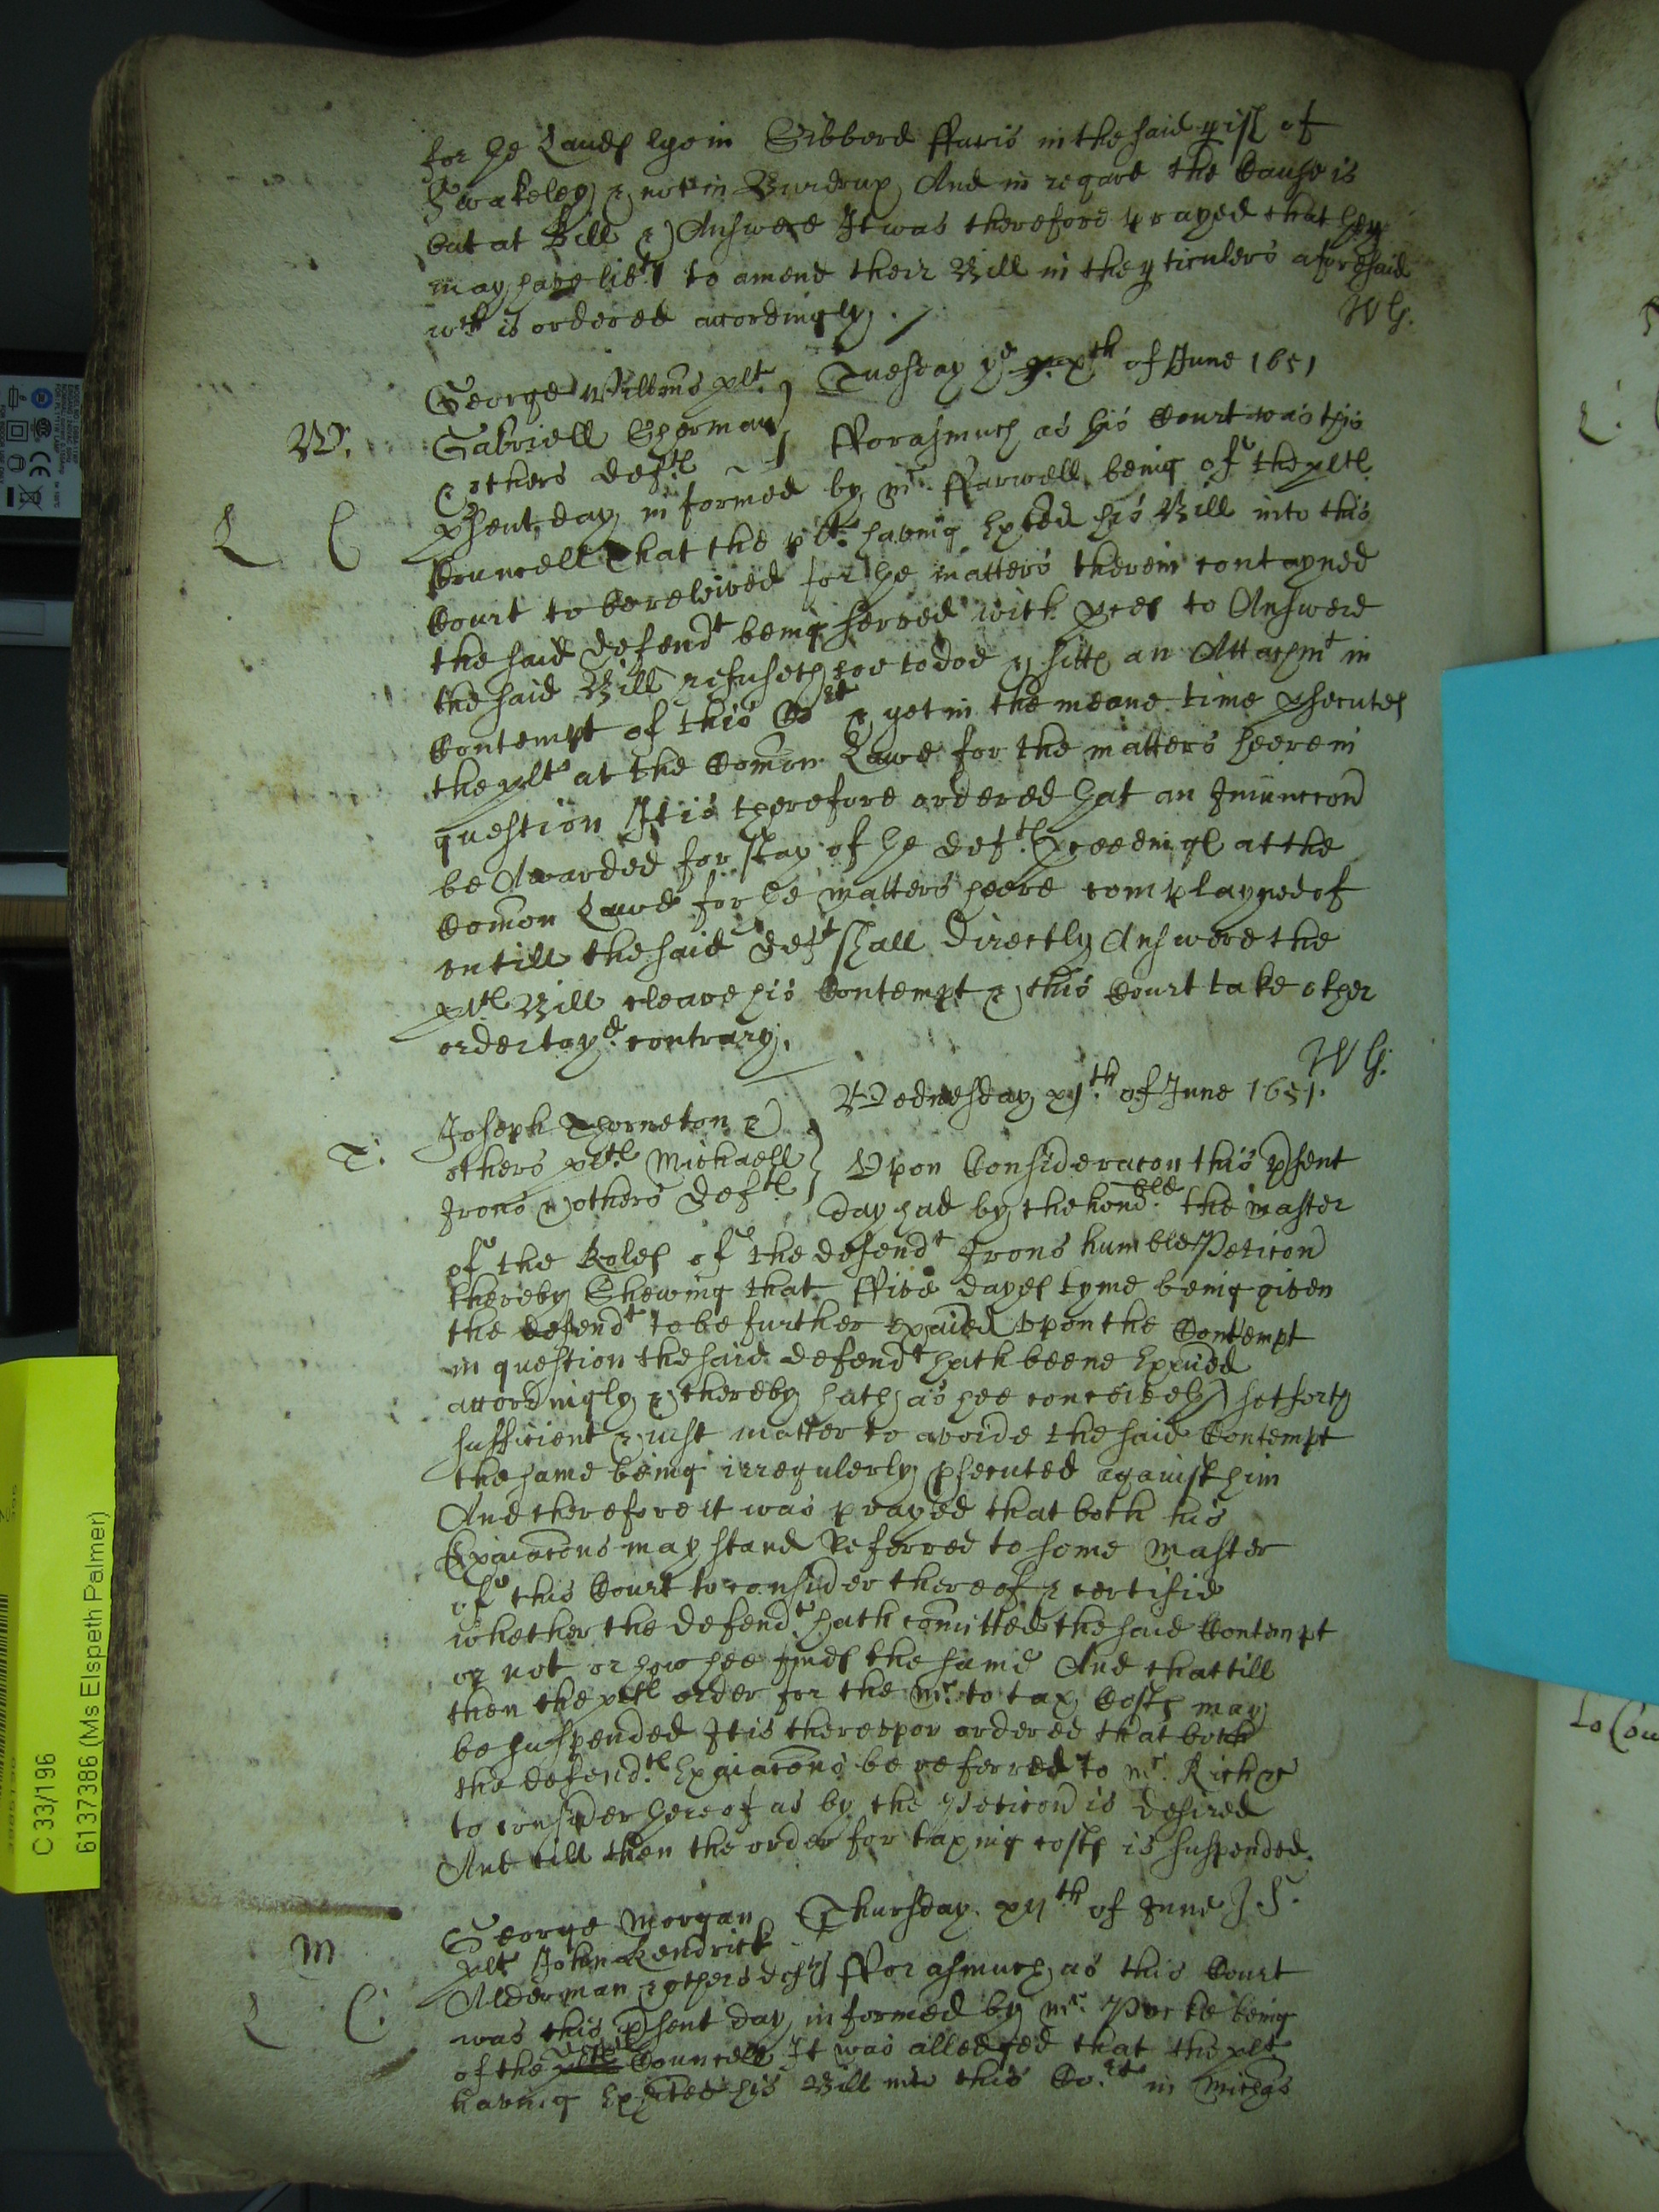 for the Landes lye in Sibberd fferis in the said pish of
Swakeley & not in Burdrup And in regard the Cause is
but at Bill & Answere It was therefore prayed that they
may have libty to amend their Bill in the pticulers aforesaid
wch is ordered accordingly. /
W G.
George Willms plt. Tuesday ye xth of June 1651
W.
Gabriell Sherman
& others deftes fforasmuch as this Court was this
L C
psent day informed by mr. ffarwell being of the pltes
Councell That the plt. having exhted his Bill into this
Court to be releived for the matters therein contayned
the said defendt being served with pces to Answere
the said Bill refuseth soe to doe & sitts an Attachmt in
Contempt of this Cort & yet in the meane time psecutes
the plt at the Comon Lawe for the matters heere in
question It is therefore ordered that an Iniunccon
be Awarded for stay of the deftes pceedinges at the
Comon Lawe for the matters heere complayned of
untill the said deft shall directly Answere the
pltes Bill cleare his Contempt & this Court take other
order to ye contrary.
W G.
Wednesday xjth. of June 1651.
T.
Joseph Thorneton &
others pltes Michaell
Irons & others deftes
Upon Consideracon this psent
day had by the honoble the master
of the Roles of the defendt Irons humble Peticon
thereby Shewing that ffive dayes tyme being given
the defendt to be further exaied upon the Contempt
in question the said defendt hath beene exaied
accordingly & thereby hath as hee conceiveth set forth
sufficient & iust matter to avoide the said Contempt
the same being irregulerly psecuted against him
And therefore it was prayed that both his
Exaiacons may stand Referred to some master
of this Court to consider thereof & certifie
whether the defendt hath comitted the said Contempt
or not or how hee findes the same And that till
then the pltes order for the mr. to tax Costes may
be suspended It is thereupon ordered that both
the defendtes Exaiacons be referred to mr. Rich
to consider thereof as by the Peticon is desired
And till then the order for taxing costes is suspended.
George Morgan Thursday. xijth of June J S.
M
plt John Kendrick
Alderman & others deftes fforasmuch as this Court
L C.
was this psent day informed by mr. Pecke being
of the Councell It was alledged that the plt
having exhited his Bill into this Cort in Michas
C 33/196
6137386 (Ms Elspeth Palmer)
to Cou